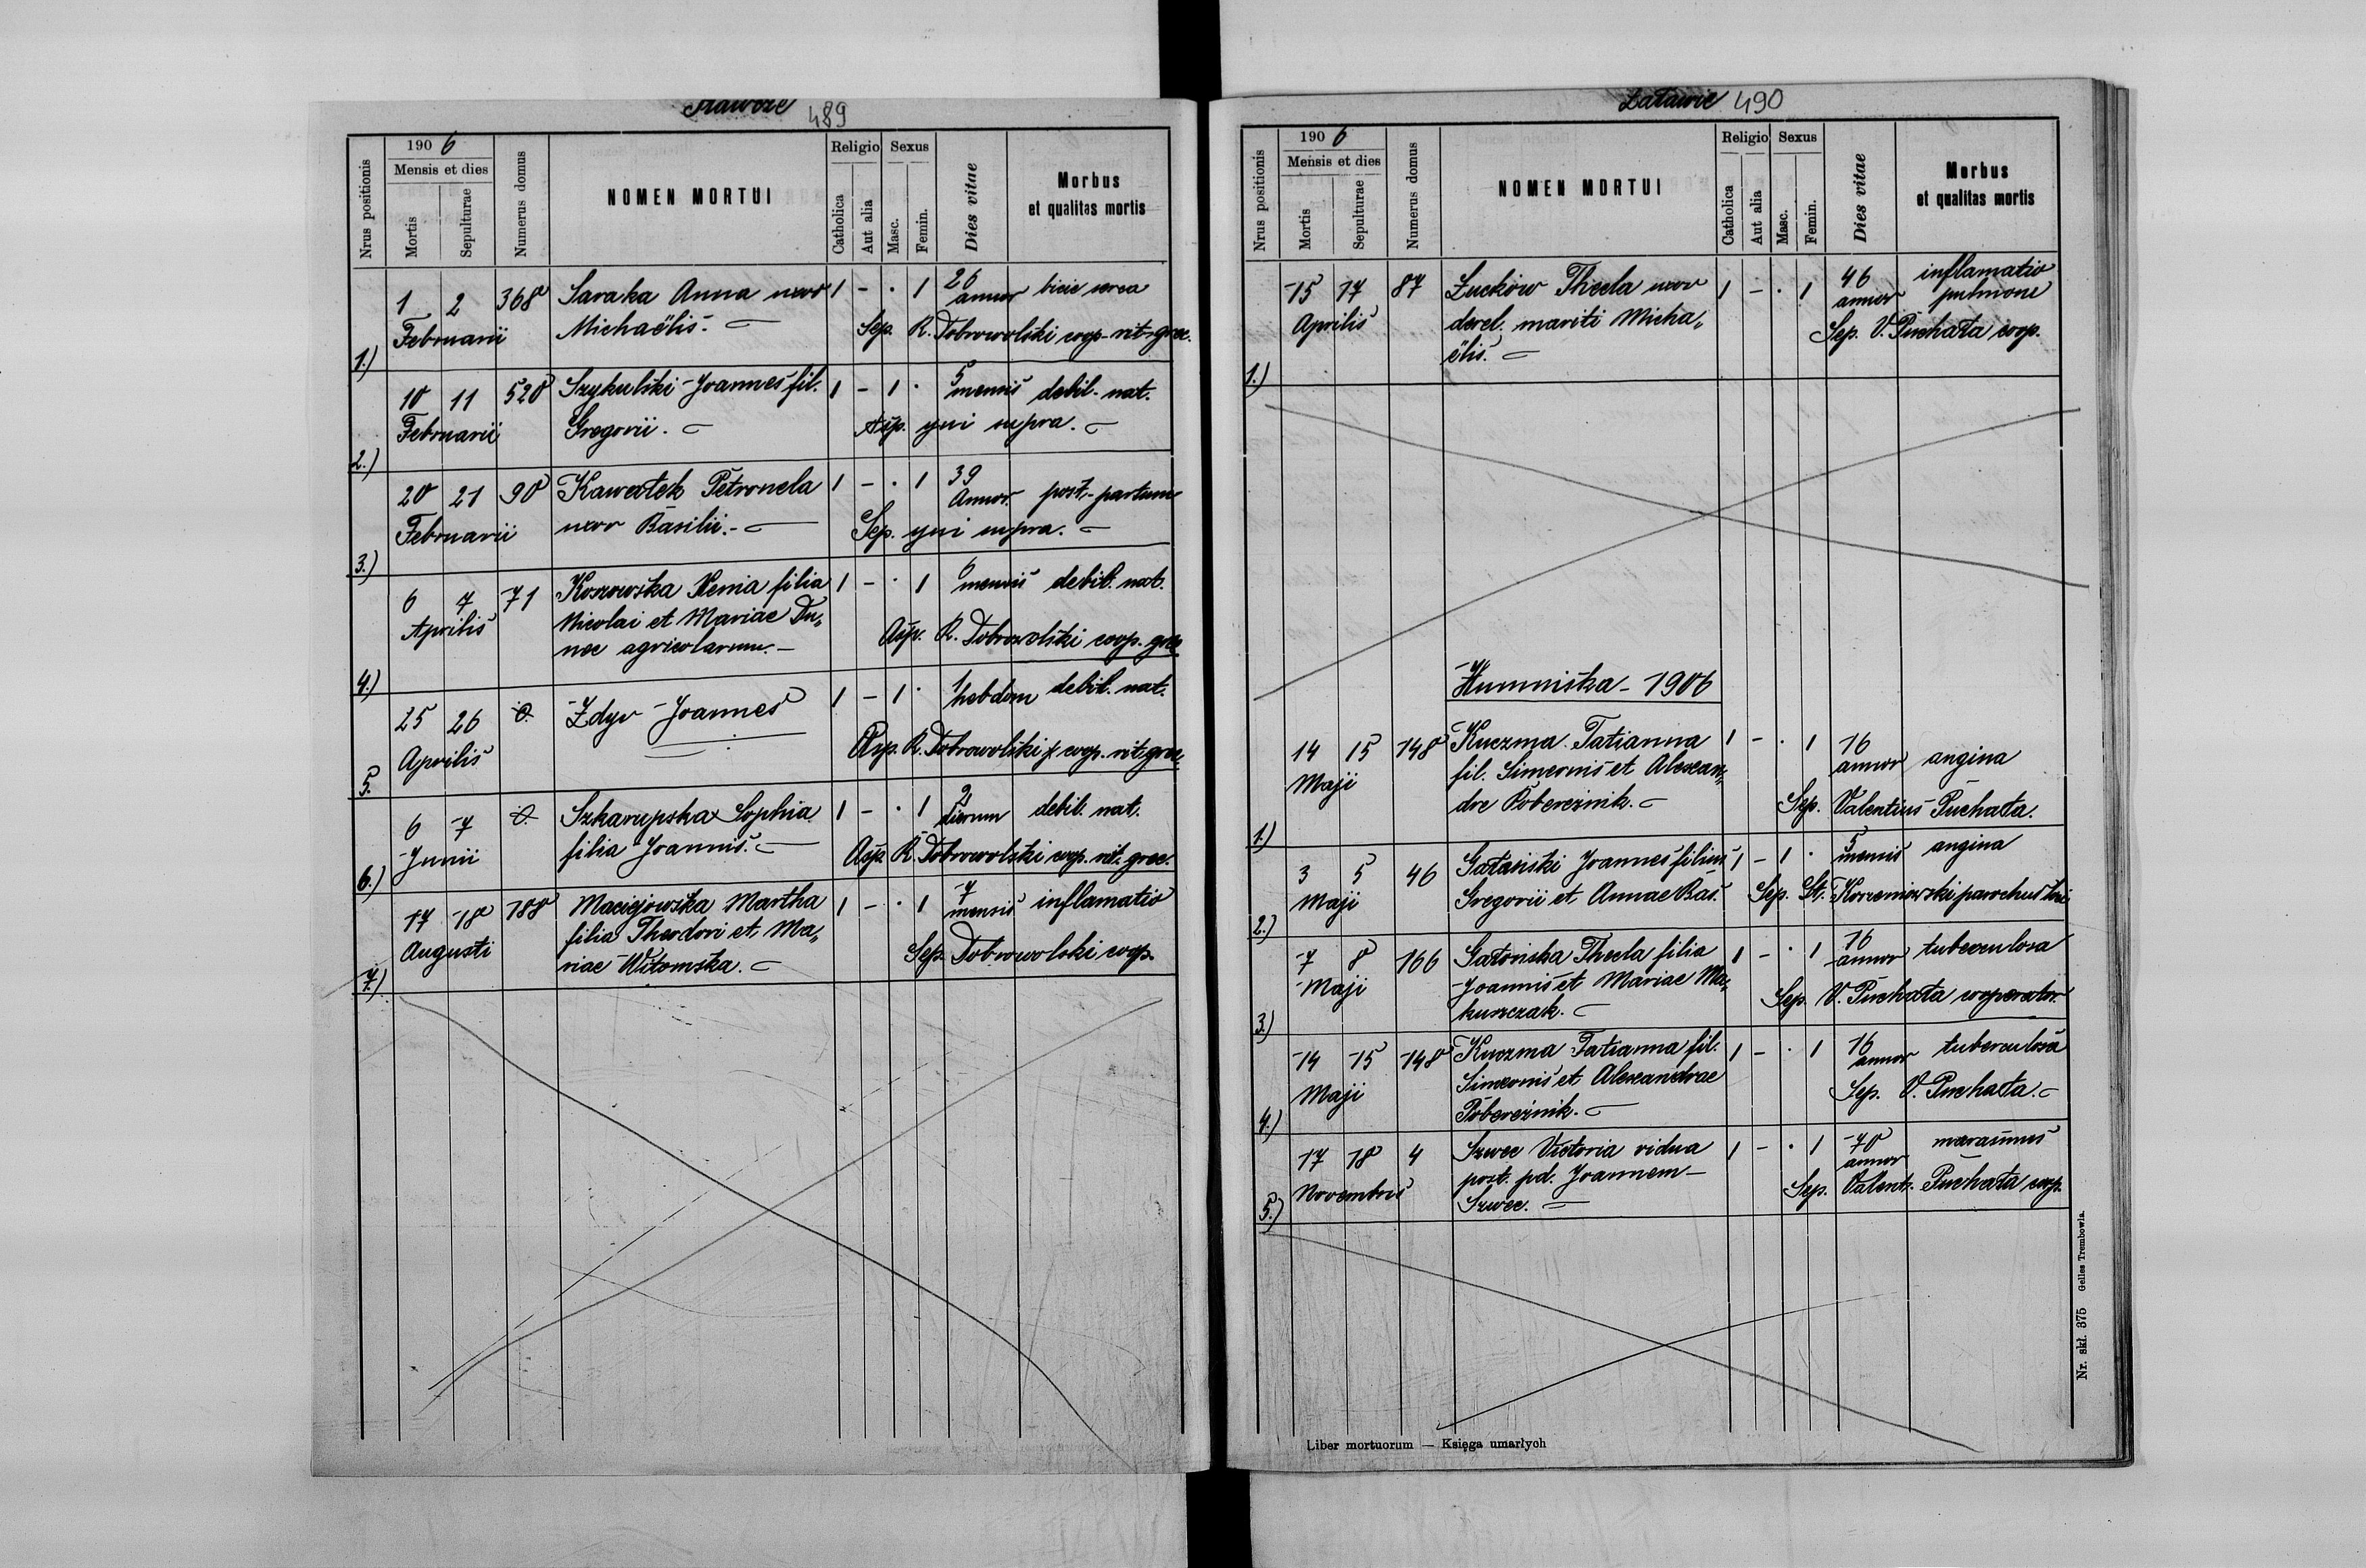 489
1906
Nrus positionis
Mensis et dies
Mortis
Sepulturae
Numerus domus
NOMEN MORTUI
Religio
Catholica
Aut alia
Sexus
Masc.
Femin.
Dies vitae
Morbus
et qualitas mortis
1.) 1 2 Februarii 368 Saraka Anna uxor 1 - . 1 26 annor
Michaëlis.
Sep. R. Dobrowolski coop. rit. graec.
2.) 10 11 Februarii 528 Szykulski Joannes fil. 1 - 1 . 5 mensis debil. nat.
Gregorii.
Asp. qui supra.
3.) 20 21 Februarii 90 Petronela 1 - . 1 39 Annor. post-partum
uxor Basilii.-
Sep. qui supra.
4.) 6 7 Aprilis 71 filia 1 - . 1 6 mensis debil. nat.
Nicolai et Mariae Du„
nec agricolarum.-
Asp. R. Dobrowolski coop. graec
5. 25 26 Aprilis Zdyr Joannes 1 - 1 . 1 hebdom debil. nat.
Asp. R. Dobrowolski coop. rit. graec.
6.) 6 7 Junii Szkarupska Sophia 1 - . 1 2 dierum debil. nat.
filia Joannis.
Asp. R. Dobrowolski coop. rit. graec.
7.) 17 18 Augusti 188 Maciejowska Martha 1 - . 1 7 mensis inflamatio
filia Theodori et Ma„
riae Witomska.
Sep. Dobrowolski coop.
Załawie 490
1906
Nrus positionis
Mensis et dies
Mortis
Sepulturae
Numerus domus
NOMEN MORTUI
Religio
Catholica
Aut alia
Sexus
Masc.
Femin.
Dies vitae
Morbus
et qualitas mortis
1.) 15 17 Aprilis 87 Żuków Thecla uxor 1 - . 1 46 annor inflamatio pulmone
derel. mariti Micha„
ëlis.
Sep. V. Puchała coop.
Humniska - 1906
1.) 14 15 Maji 148 Kuczma Tatianna 1 - . 1 16 annor angina
fil. Simeonis et Alexan„
dre Pobereżnik.
Sep. Valentius Puchała.
2.) 3 5 Maji 46 Gałański Joannes filius 1 - 1 . 5 mensis angina
Gregorii et Annae Bas.
Sep. St. Korzeniowski parochus
3.) 7 8 Maji 166 Thecla filia 1 - . 1 16 annor tuberculosa
Joannis et Mariae Ma„
kuszczak.
Sep. V. Puchała cooperator
4.) 14 15 Maji 148 Kuczma Tatianna fil. 1 - . 1 16 annor tuberculosa
Simeonis et Alexandrae
Pobereżnik.
Sep. V. Puchała.
5.) 17 18 Novembris 4 Szwec Victoria vidua 1 - . 1 70 annor marasmus
post. pd. Joannem
Szwec.
Sep. Valent. Puchała coop.
Liber mortuorum — Księga umarłych
Nr. skł. 375 Gelles Trembowla.